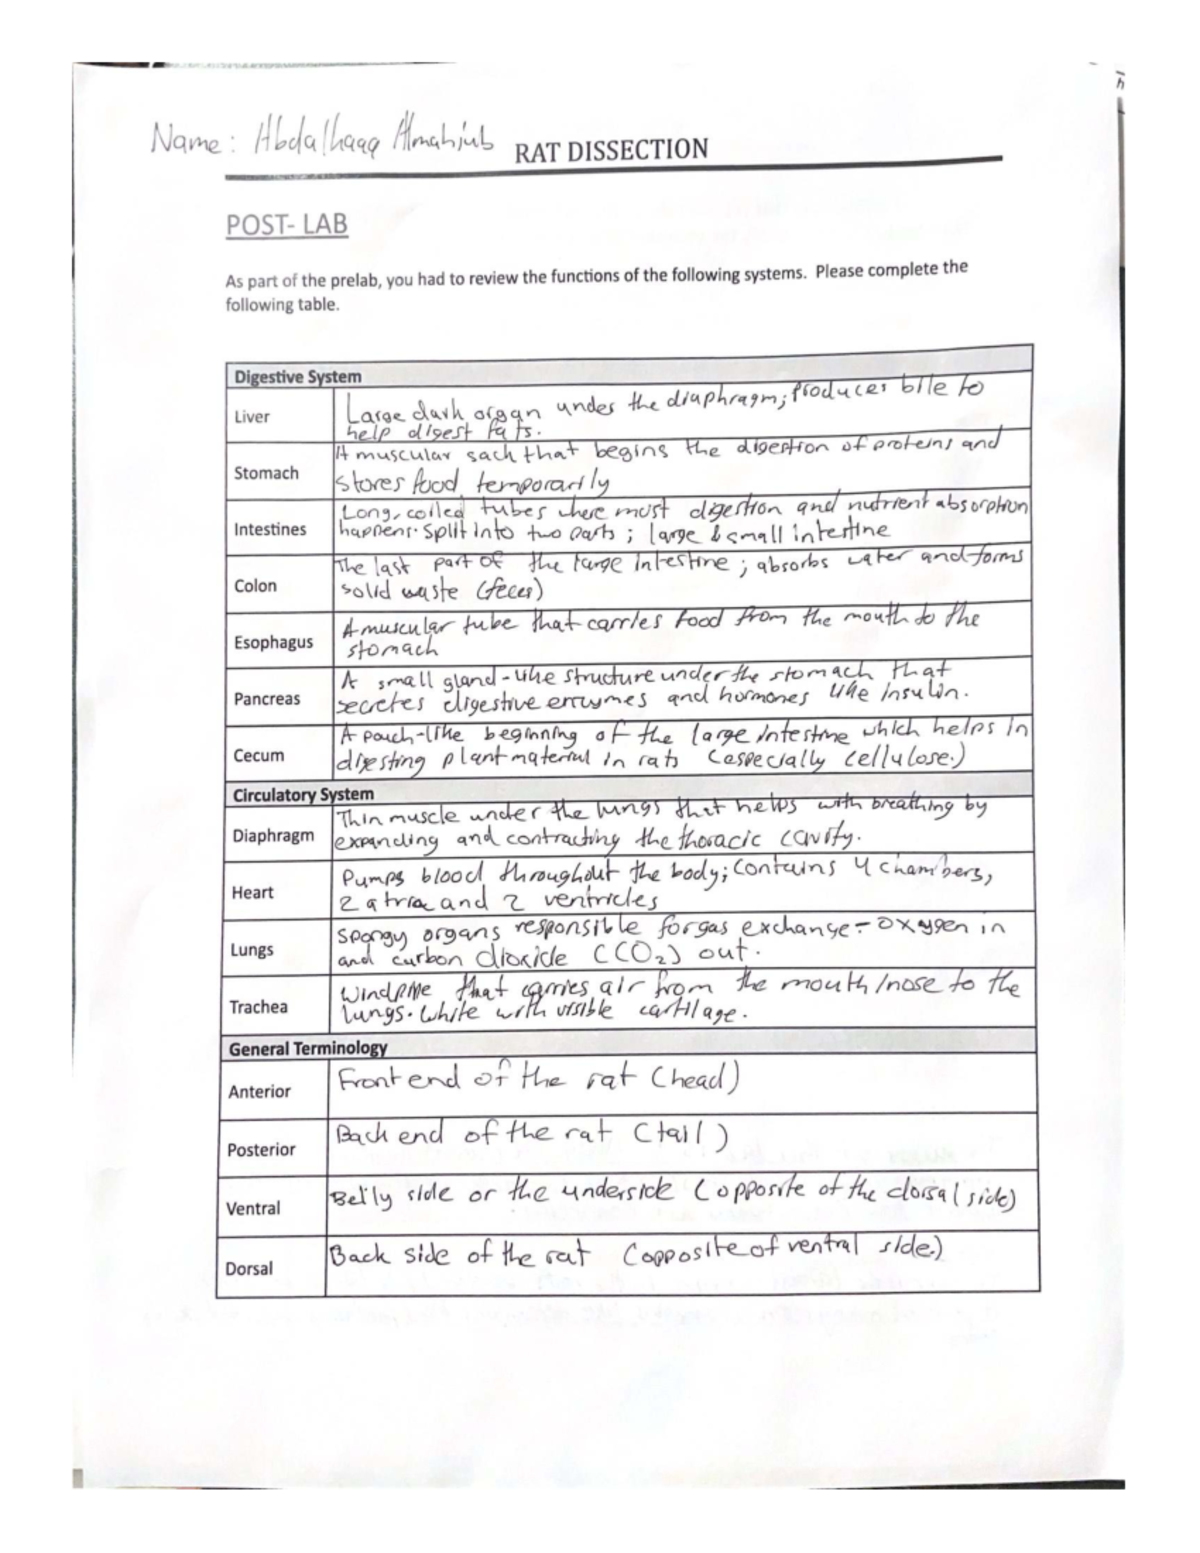 Name: Abdalhaqq Almahjub
RAT DISSECTION
POST- LAB
As part of the prelab, you had to review the functions of the following systems. Please complete the
following table.
Digestive System
Liver
Large dark organ under the diaphragm; Produces bile to
help digest fats.
Stomach
A muscular sack that begins the digestion of proteins and
stores food temporarily
Intestines
Long, coiled tubes where most digestion and nutrient absorption
happens. Split into two parts; large & small intestine
Colon
The last part of the large intestine; absorbs water and forms
solid waste (feces)
Esophagus
A muscular tube that carries food from the mouth to the
stomach
Pancreas
A small gland-like structure under the stomach that
secretes digestive enzymes and hormones like insulin.
Cecum
A pouch-like beginning of the large intestine which helps in
digesting plant material in rats (especially cellulose.)
Circulatory System
Diaphragm
Thin muscle under the lungs that helps with breathing by
expanding and contracting the thoracic cavity.
Heart
Pumps blood throughout the body; contains 4 chambers,
2 atria and 2 ventricles
Lungs
Spongy organs responsible for gas exchange - oxygen in
and carbon dioxide (CO₂) out.
Trachea
Windpipe that carries air from the mouth/nose to the
lungs. White with visible cartilage.
General Terminology
Anterior
Front end of the rat (head)
Posterior
Back end of the rat (tail)
Ventral
Belly side or the underside (opposite of the dorsal side)
Dorsal
Back side of the rat (opposite of ventral side.)